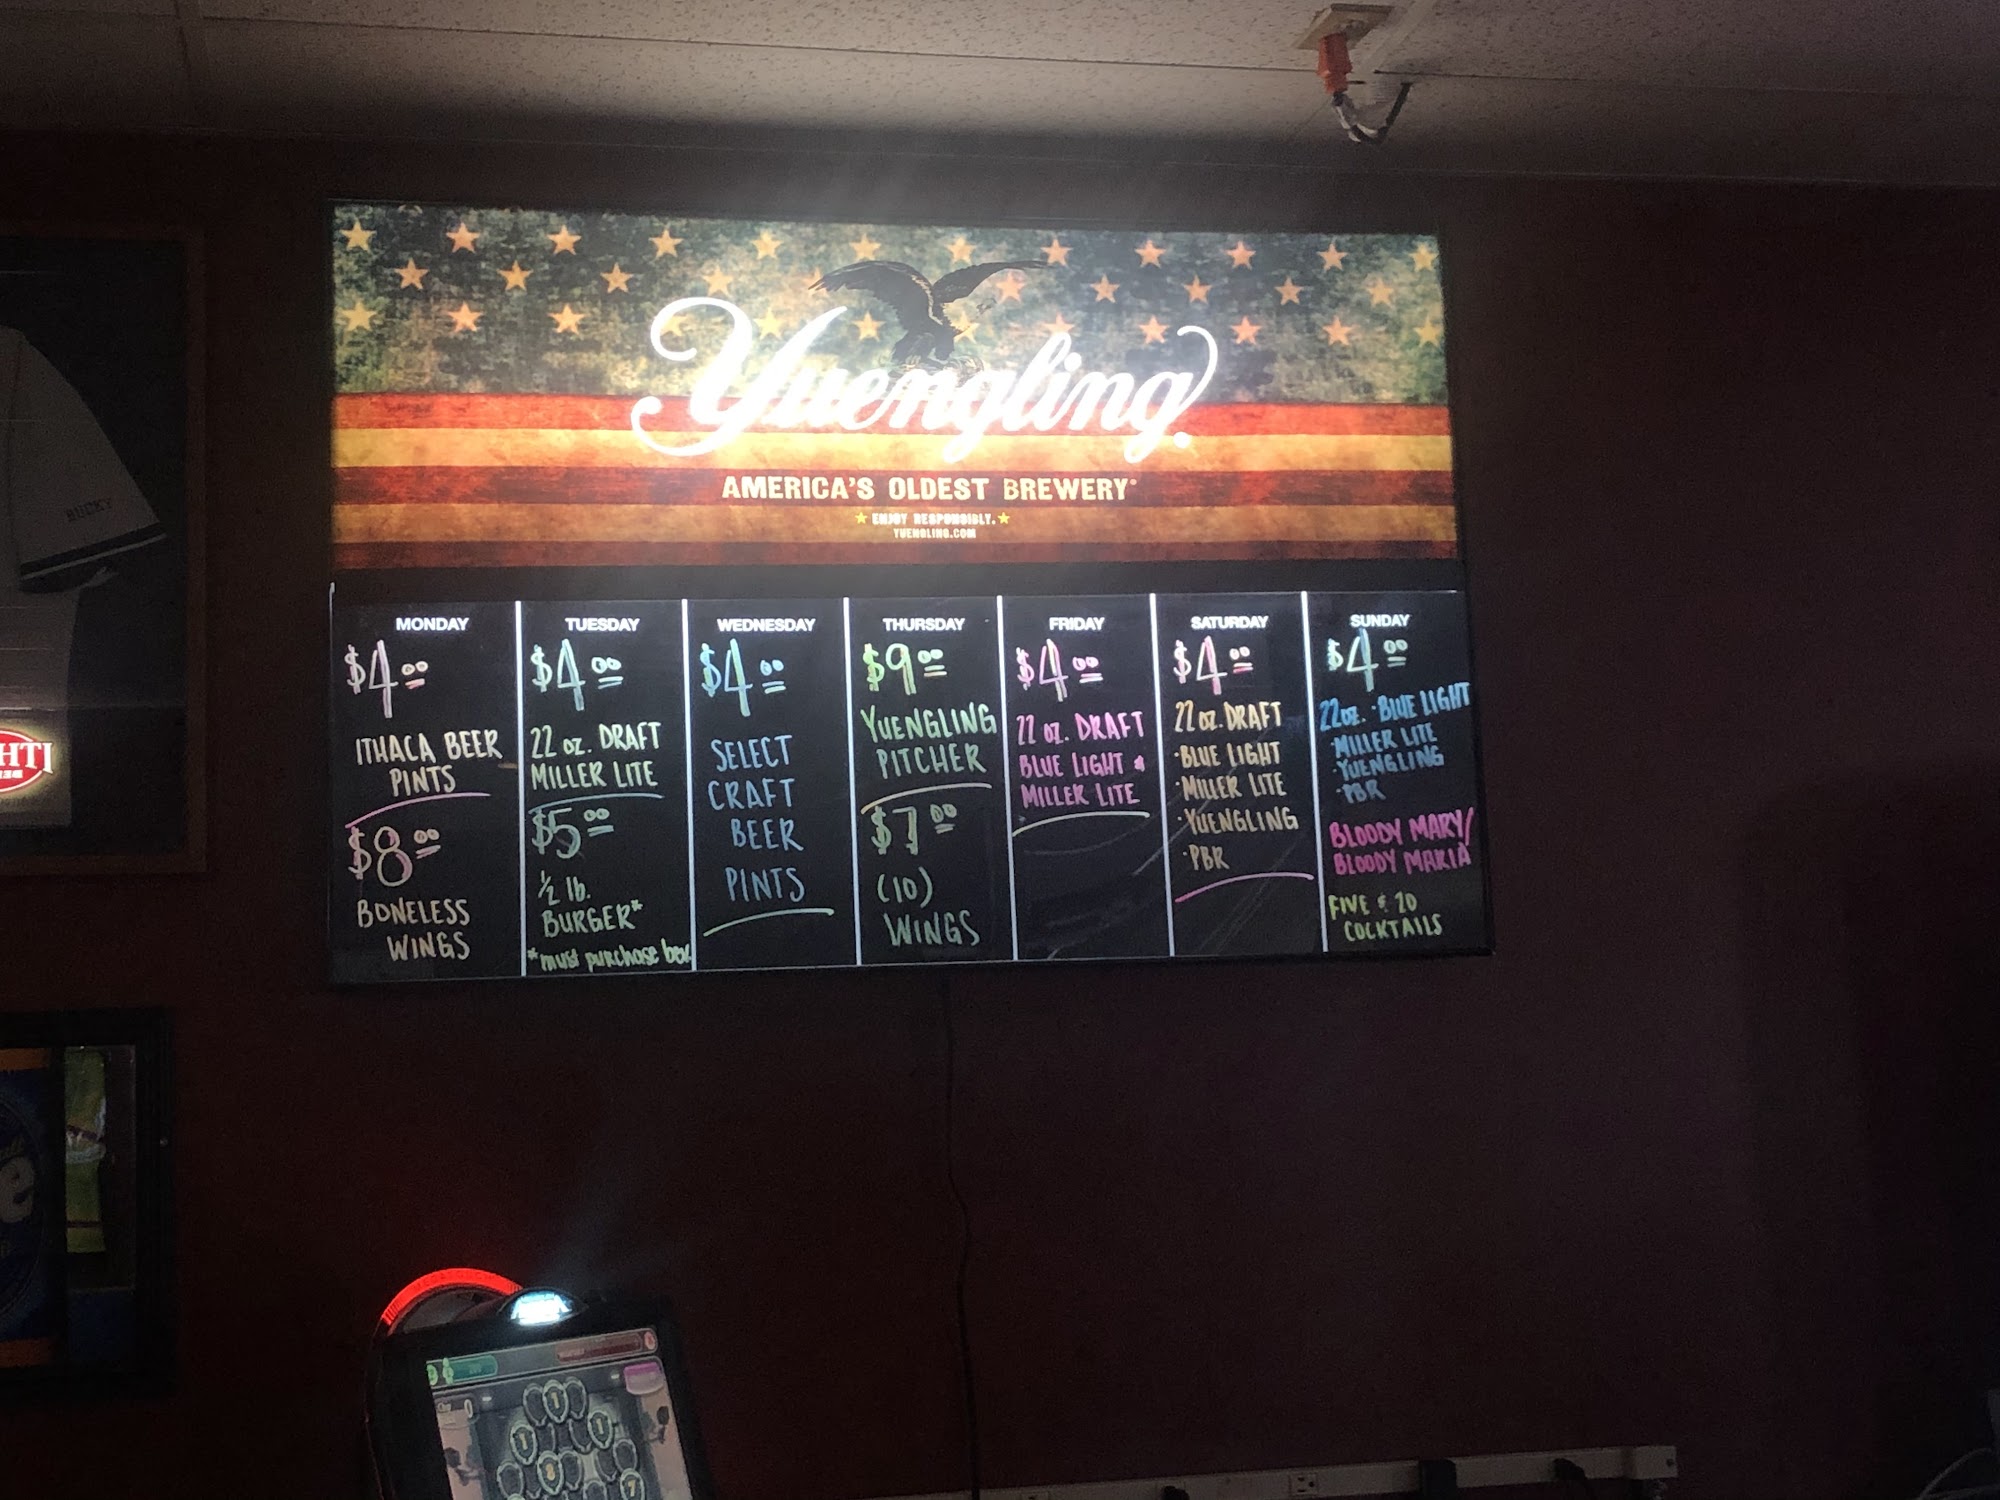 Yuengling
AMERICA'S OLDEST BREWERY®
★ ENJOY RESPONSIBLY. ★
YUENGLING.COM
MONDAY
$4.00
ITHACA BEER
PINTS
$8.00
BONELESS
WINGS
TUESDAY
$4.00
22 oz. DRAFT
MILLER LITE
$5.00
½ lb.
BURGER*
*must purchase bev.
WEDNESDAY
$4.00
SELECT
CRAFT
BEER
PINTS
THURSDAY
$9.00
YUENGLING
PITCHER
$7.00
(10)
WINGS
FRIDAY
$4.00
22 oz. DRAFT
BLUE LIGHT &
MILLER LITE
SATURDAY
$4.00
22 oz. DRAFT
·BLUE LIGHT
·MILLER LITE
·YUENGLING
·PBR
SUNDAY
$4.00
22oz. ·BLUE LIGHT
·MILLER LITE
·YUENGLING
·PBR
BLOODY MARY/
BLOODY MARIA
FIVE & 20
COCKTAILS
BUCKY
HTI